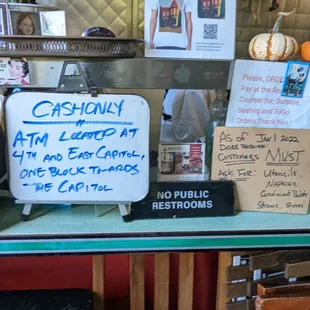 CASH ONLY
ATM LOCATED AT
4TH AND EAST CAPITOL,
ONE BLOCK TOWARDS
- THE CAPITOL
NO PUBLIC
RESTROOMS
Please, ORDER
Pay at the
Counter for: Outside
Seating and ToGo
Orders. Thank You
As of Jan 1 2022
Customers MUST
Ask For:
Utensils,
Napkins